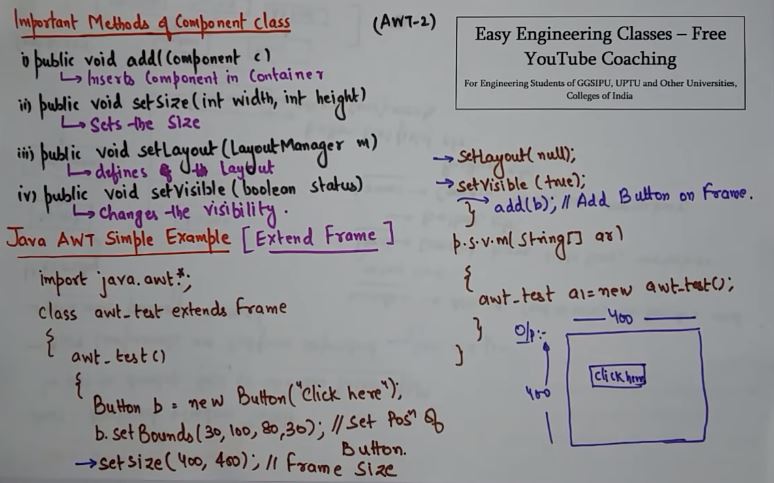 Important Methods of Component class
(AWT-2)
Easy Engineering Classes – Free
YouTube Coaching
For Engineering Students of GGSIPU, UPTU and Other Universities,
Colleges of India
i) public void add(Component c)
↳ Inserts Component in Container
ii) public void setSize(int width, int height)
↳ Sets the Size
iii) public void setLayout(LayoutManager m)
↳ defines the Layout
iv) public void setVisible(boolean status)
↳ Changes the visibility.
Java AWT Simple Example [Extend Frame]
import java.awt.*;
class awt_test extends Frame
{
awt_test()
{
Button b = new Button("Click here");
b.setBounds(30,100,80,30); // Set Posⁿ of
Button.
→ setSize(400, 400); // Frame Size
→ setLayout(null);
→ setVisible(true);
→ add(b); // Add Button on Frame.
}
p.s.v.m(String[] ar)
{
awt_test a1=new awt_test();
}
}
O/p:-
400
400
Click here